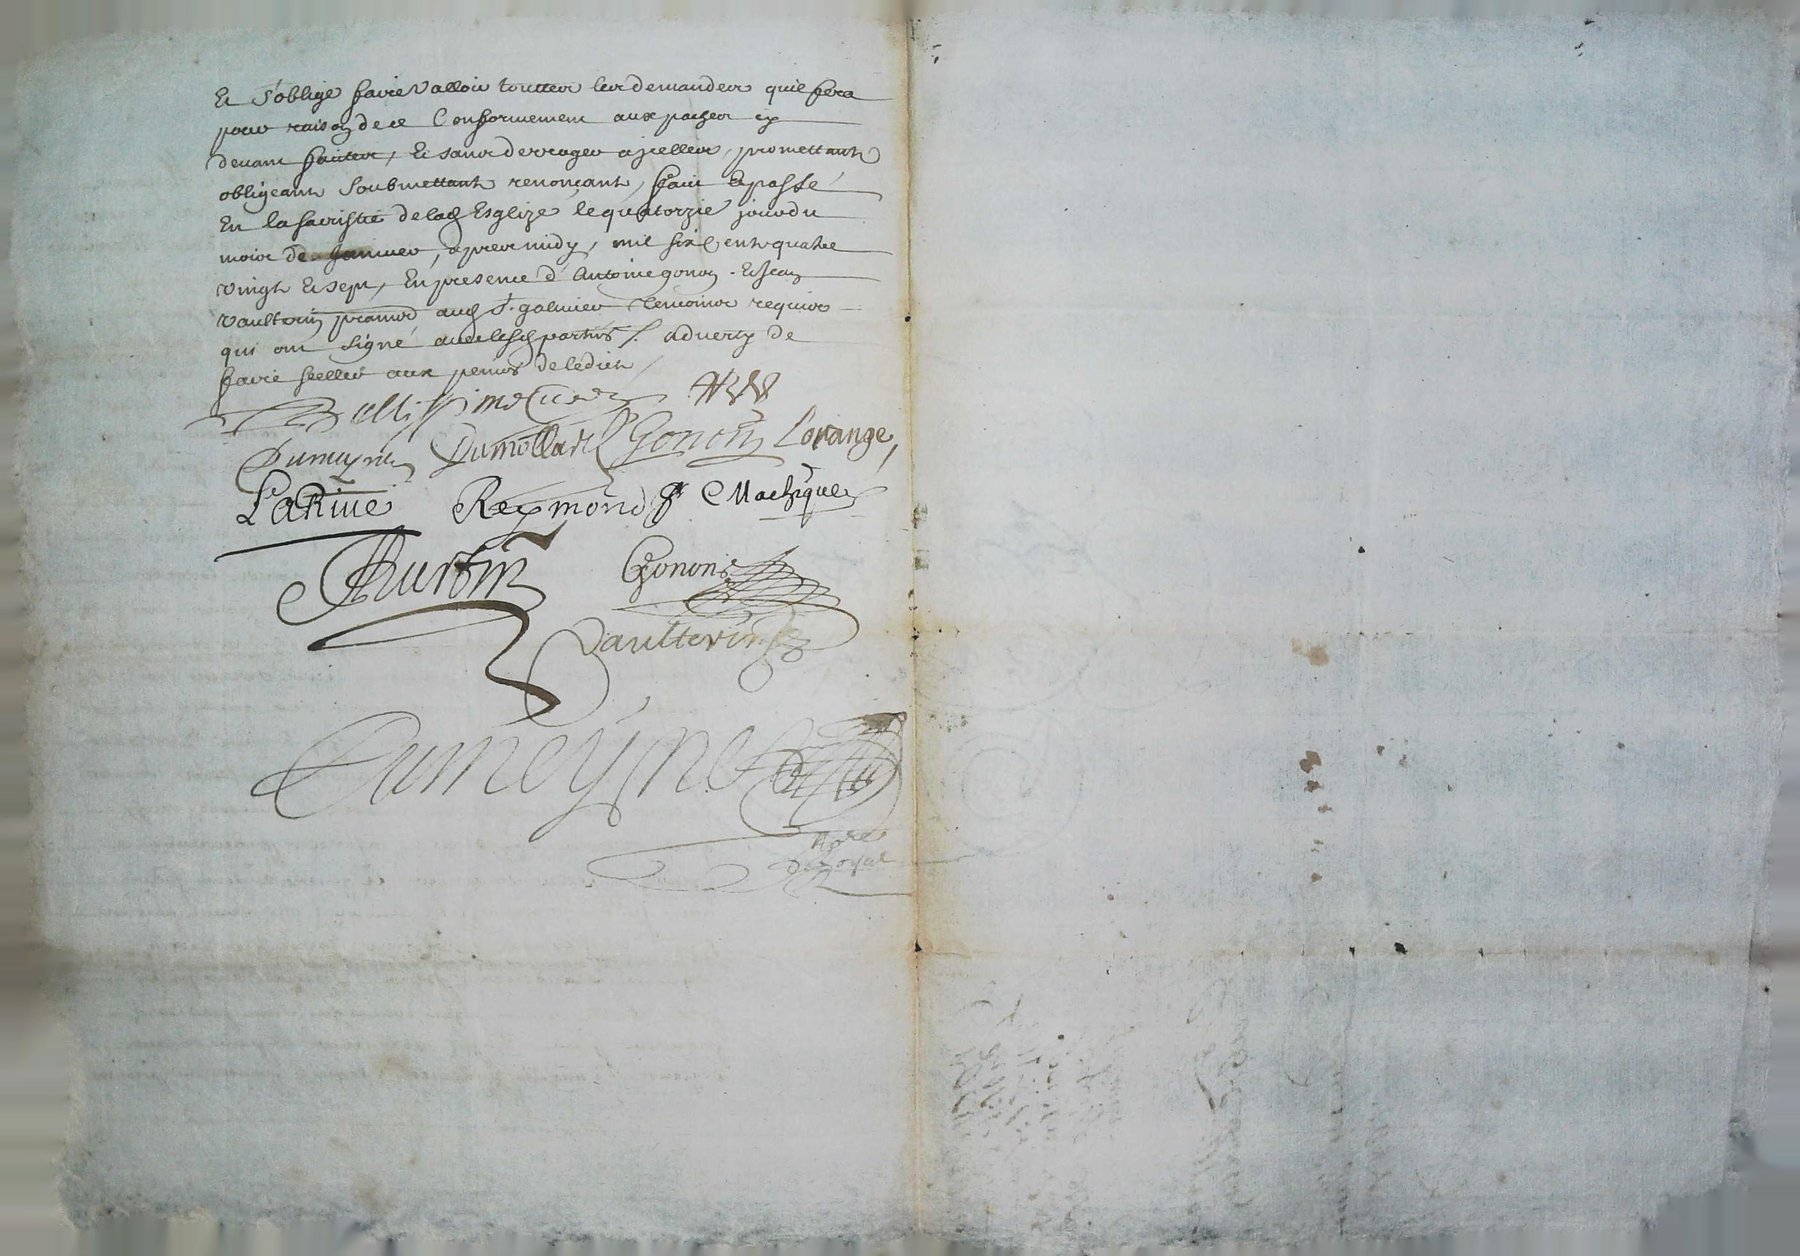 Et s'oblige faire valloir touttes les demandes quil fera
pour raison de ce Conformement aux paches cy
devant faittes, Et sans derroger a jcelles, promettant
obligeant soubmettant renonçant, faict & passé
En la sacristie de lad Esglize le quatorzie jour du
mois de Janvier, apres midy, mil six Cents quatre
vingts & sept, En presence d'Antoine gonon & Jean
vaulterin aud St. galmier temoins requis
qui ont signé avec lesd parties /. adverty de
faire seeller aux peines de ledict
Dumeyne Dumollard Gonon Lorange,
LaRive Reymond Machizaud
Thurbin Gonon
Vaulterin
Dumeyne
Nore
Royal